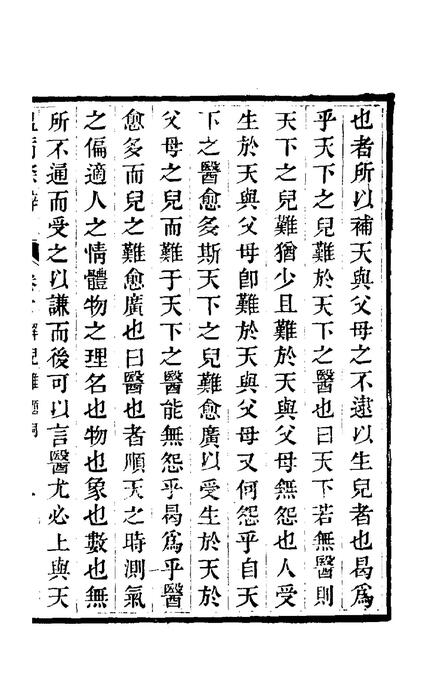 也者所以補天與父母之不逮以生兒者也曷爲
乎天下之兒難於天下之醫也曰天下若無醫則
天下之兒難猶少且難於天與父母無怨也人受
生於天與父母卽難於天與父母又何怨乎自天
下之醫愈多斯天下之兒難愈廣以受生於天於
父母之兒而難于天下之醫能無怨乎曷爲乎醫
愈多而兒之難愈廣也曰醫也者順天之時測氣
之偏適人之情體物之理名也物也象也數也無
所不通而受之以謙而後可以言醫尤必上與天
卷 解兒難題詞